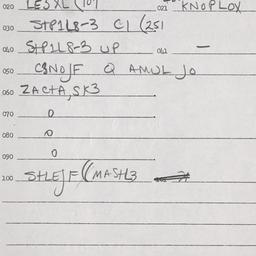 020 LESXL (101 021 KNOPLOX
030 StP1L8-3 C1 (251
040 StP1L8-3 UP 041 —
050 C8NOJF Q AMUL JO
060 ZACTA, SK3
070 0
080 0
090 0
100 SHLEJF ((MASTL3